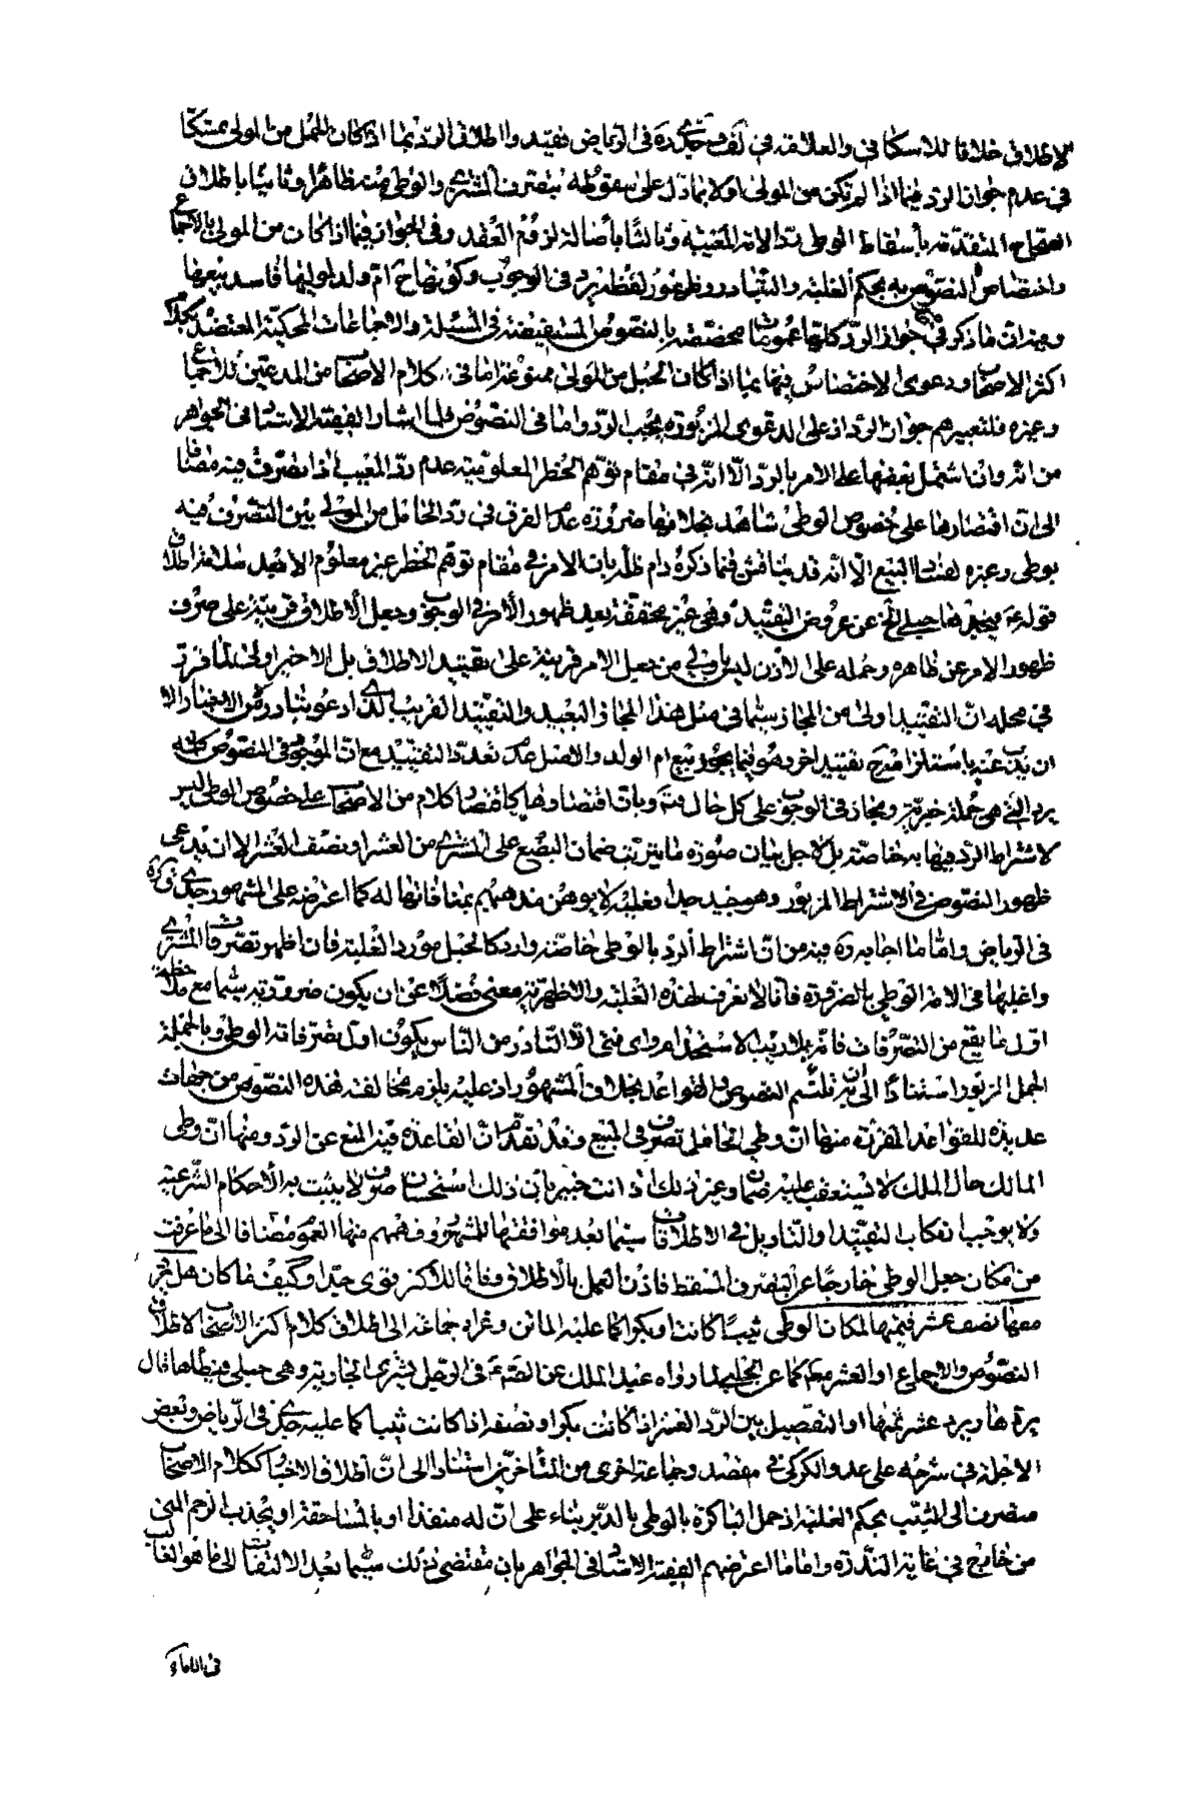 الاطلاق خلافا للاسكافي والعلامة في لف وجدي ره في الرياض تقييد اطلاق الرد بما اذا كان الحمل من المولى تمسكا
في عدم جواز الرد فيما اذا لم تكن من المولى اولا بما دل على سقوطه بتصرف المشتري والوطي منه ظاهرا وثانيا باطلاق
الصحاح المتقدمة باسقاط الوطي رد الامة المعيبة وثالثا باصالة لزوم العقد وفي الجواز فيما اذا كان من المولى بالاجماع
واختصاص النصوص به بحكم الغلبة والتبادر وظهور لفظ يرد في الوجوب وكونها ح ام ولد لموليها فاسد بيعها
وفيه ان ما ذكر في جواز الرد كلها عمومات مخصصة بالنصوص المستفيضة في المسئلة والاجماعات المحكية المعتضد بكلام
اكثر الاصحاب ودعوى الاختصاص فيها بما اذا كان الحبل من المولى ممنوعة اما في كلام الاصحاب من المدعين للاجماع
وغيره فلتعبيرهم جواز الرد اذ على الدعوى المزبورة يجب الرد واما في النصوص فلما اشار الفقيه الاستاد في الجواهر
من انه وان اشتمل بعضها على الامر بالرد الا انه في مقام توهم الحظر المعلومية عدم رد المعيب اذا تصرف فيه مضافا
الى ان اقتصارها على خصوص الوطي شاهد بخلافها ضرورة عدم الفرق في رد الحامل من المولى بين التصرف فيه
بوطي وغيره لفساد البيع الا انه قد يناقش فيما ذكره دام ظله بان الامر في مقام توهم الحظر غير معلوم الاصل سلامة اطلاق
قوله ع فيجدها حبلى الخ عن عروض التقييد وهي غير محققة بعد ظهور الامر في الوجوب وجعل الاطلاق قرينة على صرف
ظهور الامر عن ظاهره وحمله على الاذن ليس باولى من جعل الامر قرينة على تقييد الاطلاق بل الاخير اولى لما قرر
في محله ان التقييد اولى من المجاز سيما في مثل هذا المجاز البعيد والتقييد القريب الذي ادعو تبادره من الاخبار الا
ان يذب عنه باستلزامه ح تقييد اخر وهو فيما يجوز بيع ام الولد والاصل عدم تعدد التقييد مع ان الموجود في النصوص كلمة
يرد التي هي جملة خبرية ومجاز في الوجوب على كل حال وبان اقتصارها كاقتصار كلام من الاصحاب على خصوص الوطي ليس
لاشتراط الرد فيها به خاصة بل لاجل بيان صورة ما يترتب ضمان البضع على المشتري من العشر او نصف العشر الا ان يدعى
ظهور النصوص في الاشتراط المزبور وهو جيد جدا
في الرياض واما ما اجاب ره فيه من ان اشتراط الرد بالوطي خاصة وارد كالحبل مورد الغلبة فان اظهر تصرفات المشتري
واغلبها في الامة الوطي بالضرورة فانا لا نعرف لهذه الغلبة والاظهرية معنى فضلا عن ان يكون ضرورية سيما مع ملاحظة
اول ما يقع من التصرفات فانه بلا ريب الاستخدام واي فتى الا النادر من الناس يكون اول تصرفاته الوطي وبالجملة
الحمل المزبور استنادا الى انه تلتئم النصوص والقواعد بخلاف المشهور اذ عليه يلزم مخالفة هذه النصوص من جهات
عديدة للقواعد المقررة منها ان وطي الحامل تصرف في المبيع وقد تقدم ان القاعدة فيه المنع عن الرد ومنها ان وطي
المالك حال الملك لا يستعقب عليه ضمان وغير ذلك اذ انت خبير بان ذلك استحسان صرف لا يثبت به الاحكام الشرعية
ولا يوجب ارتكاب التقييد او التاويل في الاطلاقات سيما بعد موافقتها للمشهور وفهمهم منها العموم مضافا الى ما عرفت
من امكان جعل الوطي خارجا عن التصرف المسقط فاذن العمل بالاطلاق وفاقا للاكثر قوي جدا وكيف ما كان هل يرد
معها نصف عشر قيمتها لمكان الوطي ثيبا كانت او بكرا كما عليه الماتن وعزاه جماعة الى اطلاق كلام اكثر الاصحاب لاطلاق
النصوص والاجماع او العشر كما عن الحلبي لما رواه عبد الملك عن الصادق ع في الرجل يشتري الجارية وهي حبلى فيطأها قال
يردها ويرد عشر ثمنها او التفصيل بين الرد العشر اذا كانت بكرا ونصفه اذا كانت ثيبا كما عليه جدي في الرياض وبعض
الاجلة في شرحه على عد والكركي في مقصد وجماعة اخرى من المتأخرين استنادا الى ان اطلاق الاخبار ككلام الاصحاب
منصرف الى الثيب بحكم الغلبة اذ حمل الباكرة بالوطي بالدبر بناء على ان له منفذا او بالمساحقة او بجذب الرحم المني
من خارج في غاية الندرة واما ما اعترضهم الفقيه الاستاد في الجواهر بان مقتضى ذلك سيما بعد الالتفات الى ما هو الغالب
في الاماء